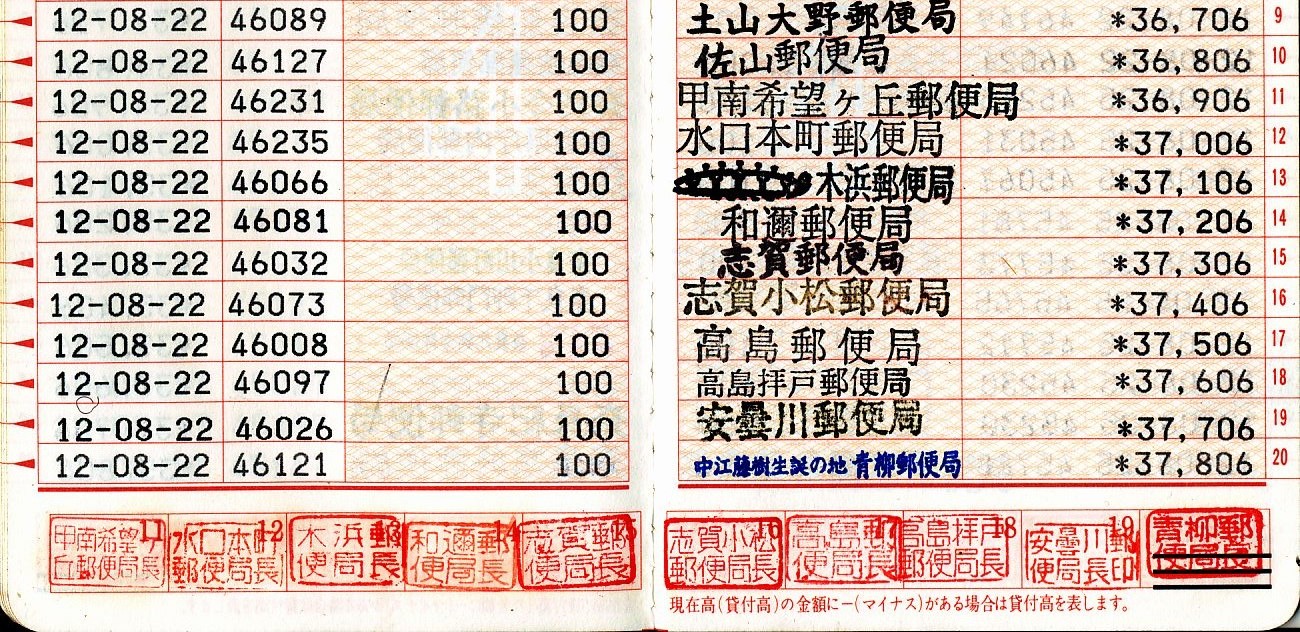 12-08-22 46089 100 土山大野郵便局 *36,706 9
12-08-22 46127 100 佐山郵便局 *36,806 10
12-08-22 46231 100 甲南希望ヶ丘郵便局 *36,906 11
12-08-22 46235 100 水口本町郵便局 *37,006 12
12-08-22 46066 100 木浜郵便局 *37,106 13
12-08-22 46081 100 和邇郵便局 *37,206 14
12-08-22 46032 100 志賀郵便局 *37,306 15
12-08-22 46073 100 志賀小松郵便局 *37,406 16
12-08-22 46008 100 高島郵便局 *37,506 17
12-08-22 46097 100 高島拝戸郵便局 *37,606 18
12-08-22 46026 100 安曇川郵便局 *37,706 19
12-08-22 46121 100 中江藤樹生誕の地 青柳郵便局 *37,806 20
11 甲南希望ヶ丘郵便局長
12 水口本町郵便局長
13 木浜郵便局長
14 和邇郵便局長
15 志賀郵便局長
16 志賀小松郵便局長
17 高島郵便局長
18 高島拝戸郵便局長
19 安曇川郵便局長印
青柳郵便局長
現在高(貸付高)の金額に−(マイナス)がある場合は貸付高を表します。